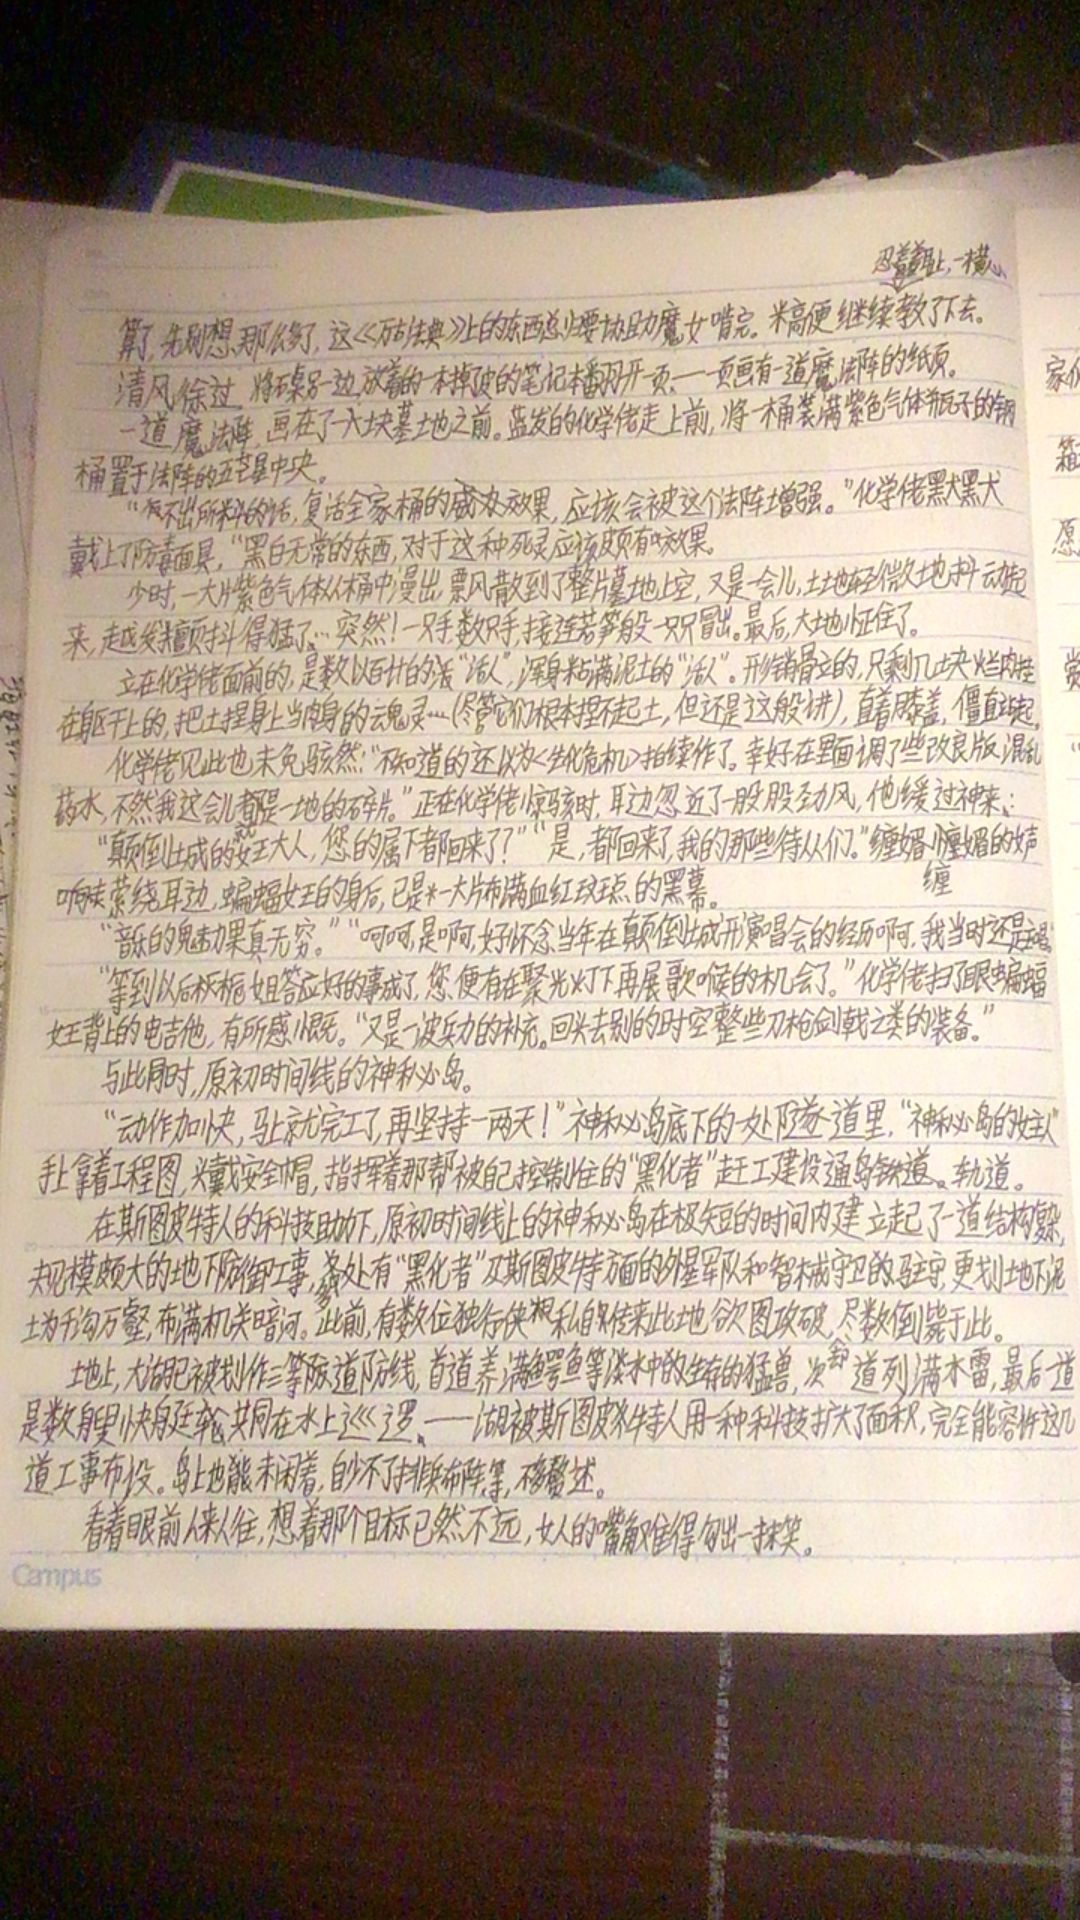 忍着羞耻，一横心，
算了，先别想那么多了，这《万古法典》上的东西总归要协助魔女啃完。米高便继续教了下去。
清风徐过，将桌另一边放着的一本掉皮的笔记本翻开一页、一页画有一道魔法阵的纸页。
一道魔法阵，画在了一大块墓地之前。蓝发的化学佬走上前，将一桶装满紫色气体瓶子的钢
桶置于法阵的五芒星中央。
不出所料的话，复活全家桶的效果，应该会被这个法阵增强。”化学佬默默
戴上了防毒面具，“黑白无常的东西，对于这种死灵应该颇有效果。
少时，一大片紫色气体从桶中漫出，飘风散到了整片墓地上空，又是一会儿，土地轻微地抖动起
来，越发颤抖得猛了…突然！一只手数只手接连若笋般一只只冒出。最后，大地怔住了。
立在化学佬面前的，是数以百计的“活人”，浑身粘满泥土的“活人”。形销骨立的，只剩几块烂肉挂
在躯干上的，把土捏身上当肉身的鬼灵…（尽管它们根本捏不起土，但还是这般讲），直着膝盖，僵直站起。
化学佬见此也未免骇然：“不知道的还以为《生化危机》拍续作了。幸好在里面调了些改良版混乱
药水，不然我这会儿都是一地的碎片。”正在化学佬惊骇时，耳边忽近了一股股劲风，他缓过神来：
“颠倒城的女王大人，您的属下都回来了？”“是，都回来了，我的那些侍从们。”的女声
萦绕耳边，蝙蝠女王的身后，已是一大片布满血红斑点的黑幕。
缠
“音乐的魅力果真无穷。”“呵呵，是啊，好怀念当年在颠倒城开演唱会的经历啊，我当时还是主唱。”
“等到以后栀姐答应好的事成了，您便有在聚光灯下再展歌喉的机会了。”化学佬扫了眼蝙蝠
女王背上的电吉他，有所感慨。“又是一波兵力的补充。回头去别的时空整些刀枪剑戟之类的装备。”
与此同时，原初时间线的神秘岛。
“动作加快，马上就完工了，再坚持一两天！”神秘岛底下的一处隧道里，“神秘岛的女主人”
手上拿着工程图，头戴安全帽，指挥着那帮被自己控制住的“黑化者”赶工建设通岛铁道、轨道。
在斯图皮特人的科技助力下，原初时间线上的神秘岛在极短的时间内建立起了一道结构复杂，
规模颇大的地下防御工事，多处有“黑化者”及斯图皮特方面的外星军队和智械守卫的驻守，更划土地下泥
土为千沟万壑，布满机关暗河。此前，有数位独行侠私自传来此地欲图攻破，尽数倒毙于此。
地上，大湖已被划作三道防线，首道养满鳄鱼等淡水中生存的猛兽，次道列满水雷，最后一道
是数艘快艇共同在水上巡逻、——湖被斯图皮特人用一种科技扩大了面积，完全能容许这几
道工事布设。岛上也未闲着，自少不了排兵布阵等，不多赘述。
看着眼前人来人往，想着那个目标已然不远，女人的嘴角难得勾出一抹笑。
Campus
家
箱
原